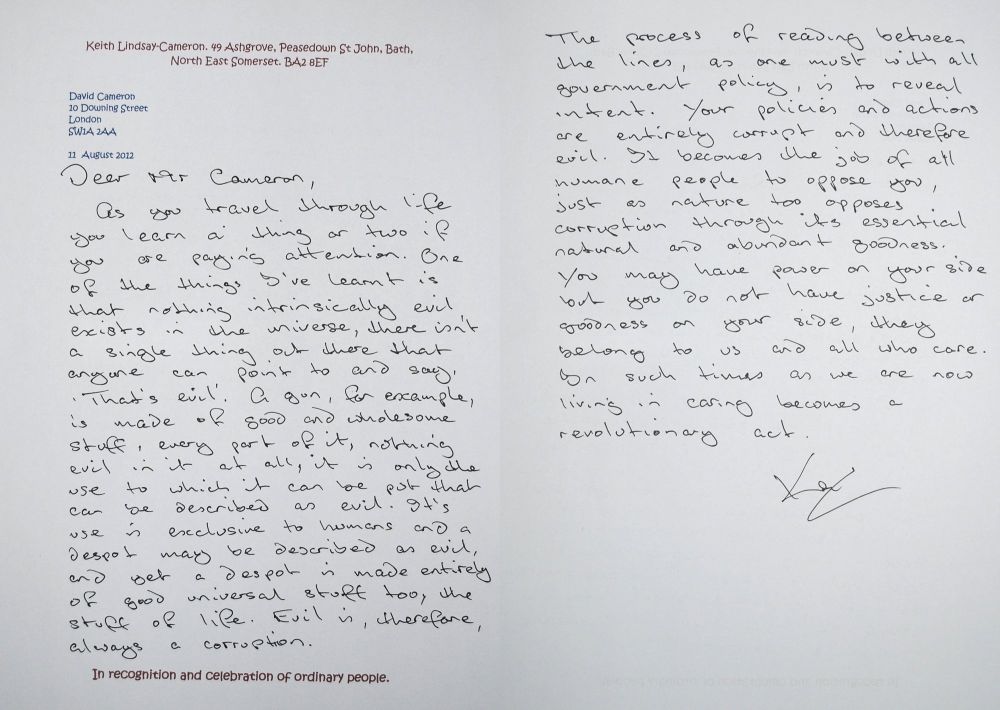 Keith Lindsay-Cameron. 49 Ashgrove, Peasedown St John, Bath,
North East Somerset. BA2 8EF
David Cameron
10 Downing Street
London
SW1A 2AA
11 August 2012
Dear Mr Cameron,
As you travel through life
you learn a thing or two if
you are paying attention. One
of the things I've learnt is
that nothing intrinsically evil
exists in the universe, there isn't
a single thing out there that
anyone can point to and say,
'That's evil'. A gun, for example,
is made of good and wholesome
stuff, every part of it, nothing
evil in it at all, it is only the
use to which it can be put that
can be described as evil. It's
use is exclusive to humans and a
despot may be described as evil,
and yet a despot is made entirely
of good universal stuff too, the
stuff of life. Evil is, therefore,
always a corruption.
In recognition and celebration of ordinary people.
The process of reading between
the lines, as one must with all
government policy, is to reveal
intent. Your policies and actions
are entirely corrupt and therefore
evil. It becomes the job of all
humane people to oppose you,
just as nature too opposes
corruption through its essential
natural and abundant goodness.
You may have power on your side
but you do not have justice or
goodness on your side, they
belong to us and all who care.
In such times as we are now
living in caring becomes a
revolutionary act.